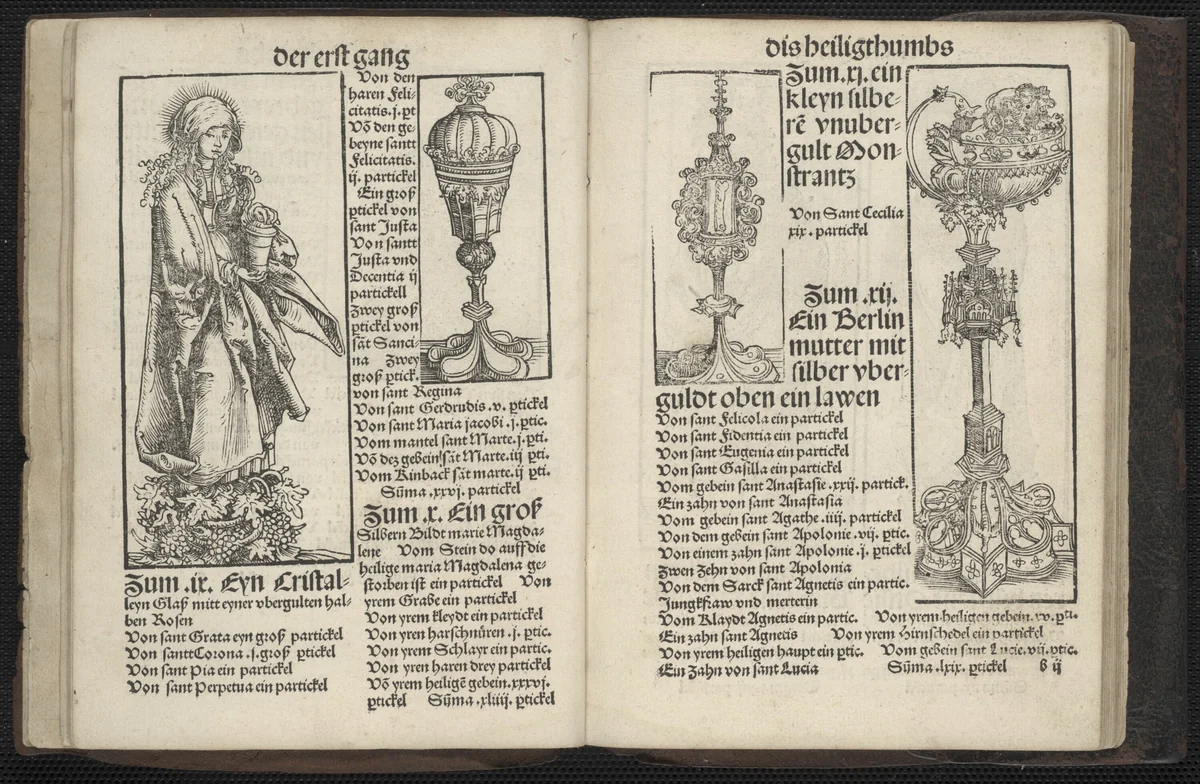 der erst gang
Zum .ix. Eyn Cristal-
leyn Glaß mitt eyner vbergulten hal-
ben Rosen
Von sant Grata eyn groß partickel
Von santt Corona .j. groß ꝑtickel
Von sant Pia ein partickel
Von sant Perpetua ein partickel
Von den
haren Feli-
citatis .j. ꝑt
Võ den ge-
beyne santt
Felicitatis.
ij. partickel
Ein groß
ꝑtickel von
sant Justa
Von santt
Justa vnd
Decentia ij
partickell
Zwey groß
ꝑtickel von
sãt Sanci-
na Zwey
groß ꝑtick.
von sant Regina
Von sant Gerdrudis .v. ꝑtickel
Von sant Maria jacobi .j. ꝑtic.
Vom mantel sant Marte .j. ꝑti.
Võ dez gebein sãt Marte .iij ꝑti.
Vom Kinback sãt marte .ij ꝑti.
Sũma .xxvj. partickel
Zum .x. Ein groß
Silbern Bildt marie Magda-
lene Vom Stein do auff die
heilige maria Magdalena ge-
storben ist ein partickel Von
yrem Grabe ein partickel
Von yrem kleydt ein partickel
Von yren harschnüren .j. ꝑtic.
Von yrem Schlayr ein partic.
Von yren haren drey partickel
Võ yrem heiligẽ gebein .xxxvj.
ꝑtickel Sũma .xliiij. ꝑtickel
dis heiligthumbs
Zum .xj. ein
kleyn silbe-
rẽ vnuber-
gult Mon-
strantz
Von Sant Cecilia
xix. partickel
Zum .xij.
Ein Berlin
mutter mit
silber vber-
guldt oben ein lawen
Von sant Felicola ein partickel
Von sant Fidentia ein partickel
Von sant Eugenia ein partickel
Von sant Gasilla ein partickel
Vom gebein sant Anastasie .xxij. partick.
Ein zahn von sant Anastasia
Vom gebein sant Agathe .iiij. partickel
Von dem gebein sant Apolonie .vij. ꝑtic.
Von einem zahn sant Apolonie .j. ꝑtickel
Zwen Zehn von sant Apolonia
Von dem Sarck sant Agnetis ein partic.
Jungkfraw vnd merterin
Vom Klaydt Agnetis ein partic. Von yrem heiligen gebein .xv. ꝑti.
Ein zahn sant Agnetis Von yrem Hirnschedel ein partickel
Von yrem heiligen haupt ein ꝑtic. Vom gebein sant Lucie .vij. ꝑtic.
Ein Zahn von sant Lucia Sũma .lxix. ꝑtickel b ij